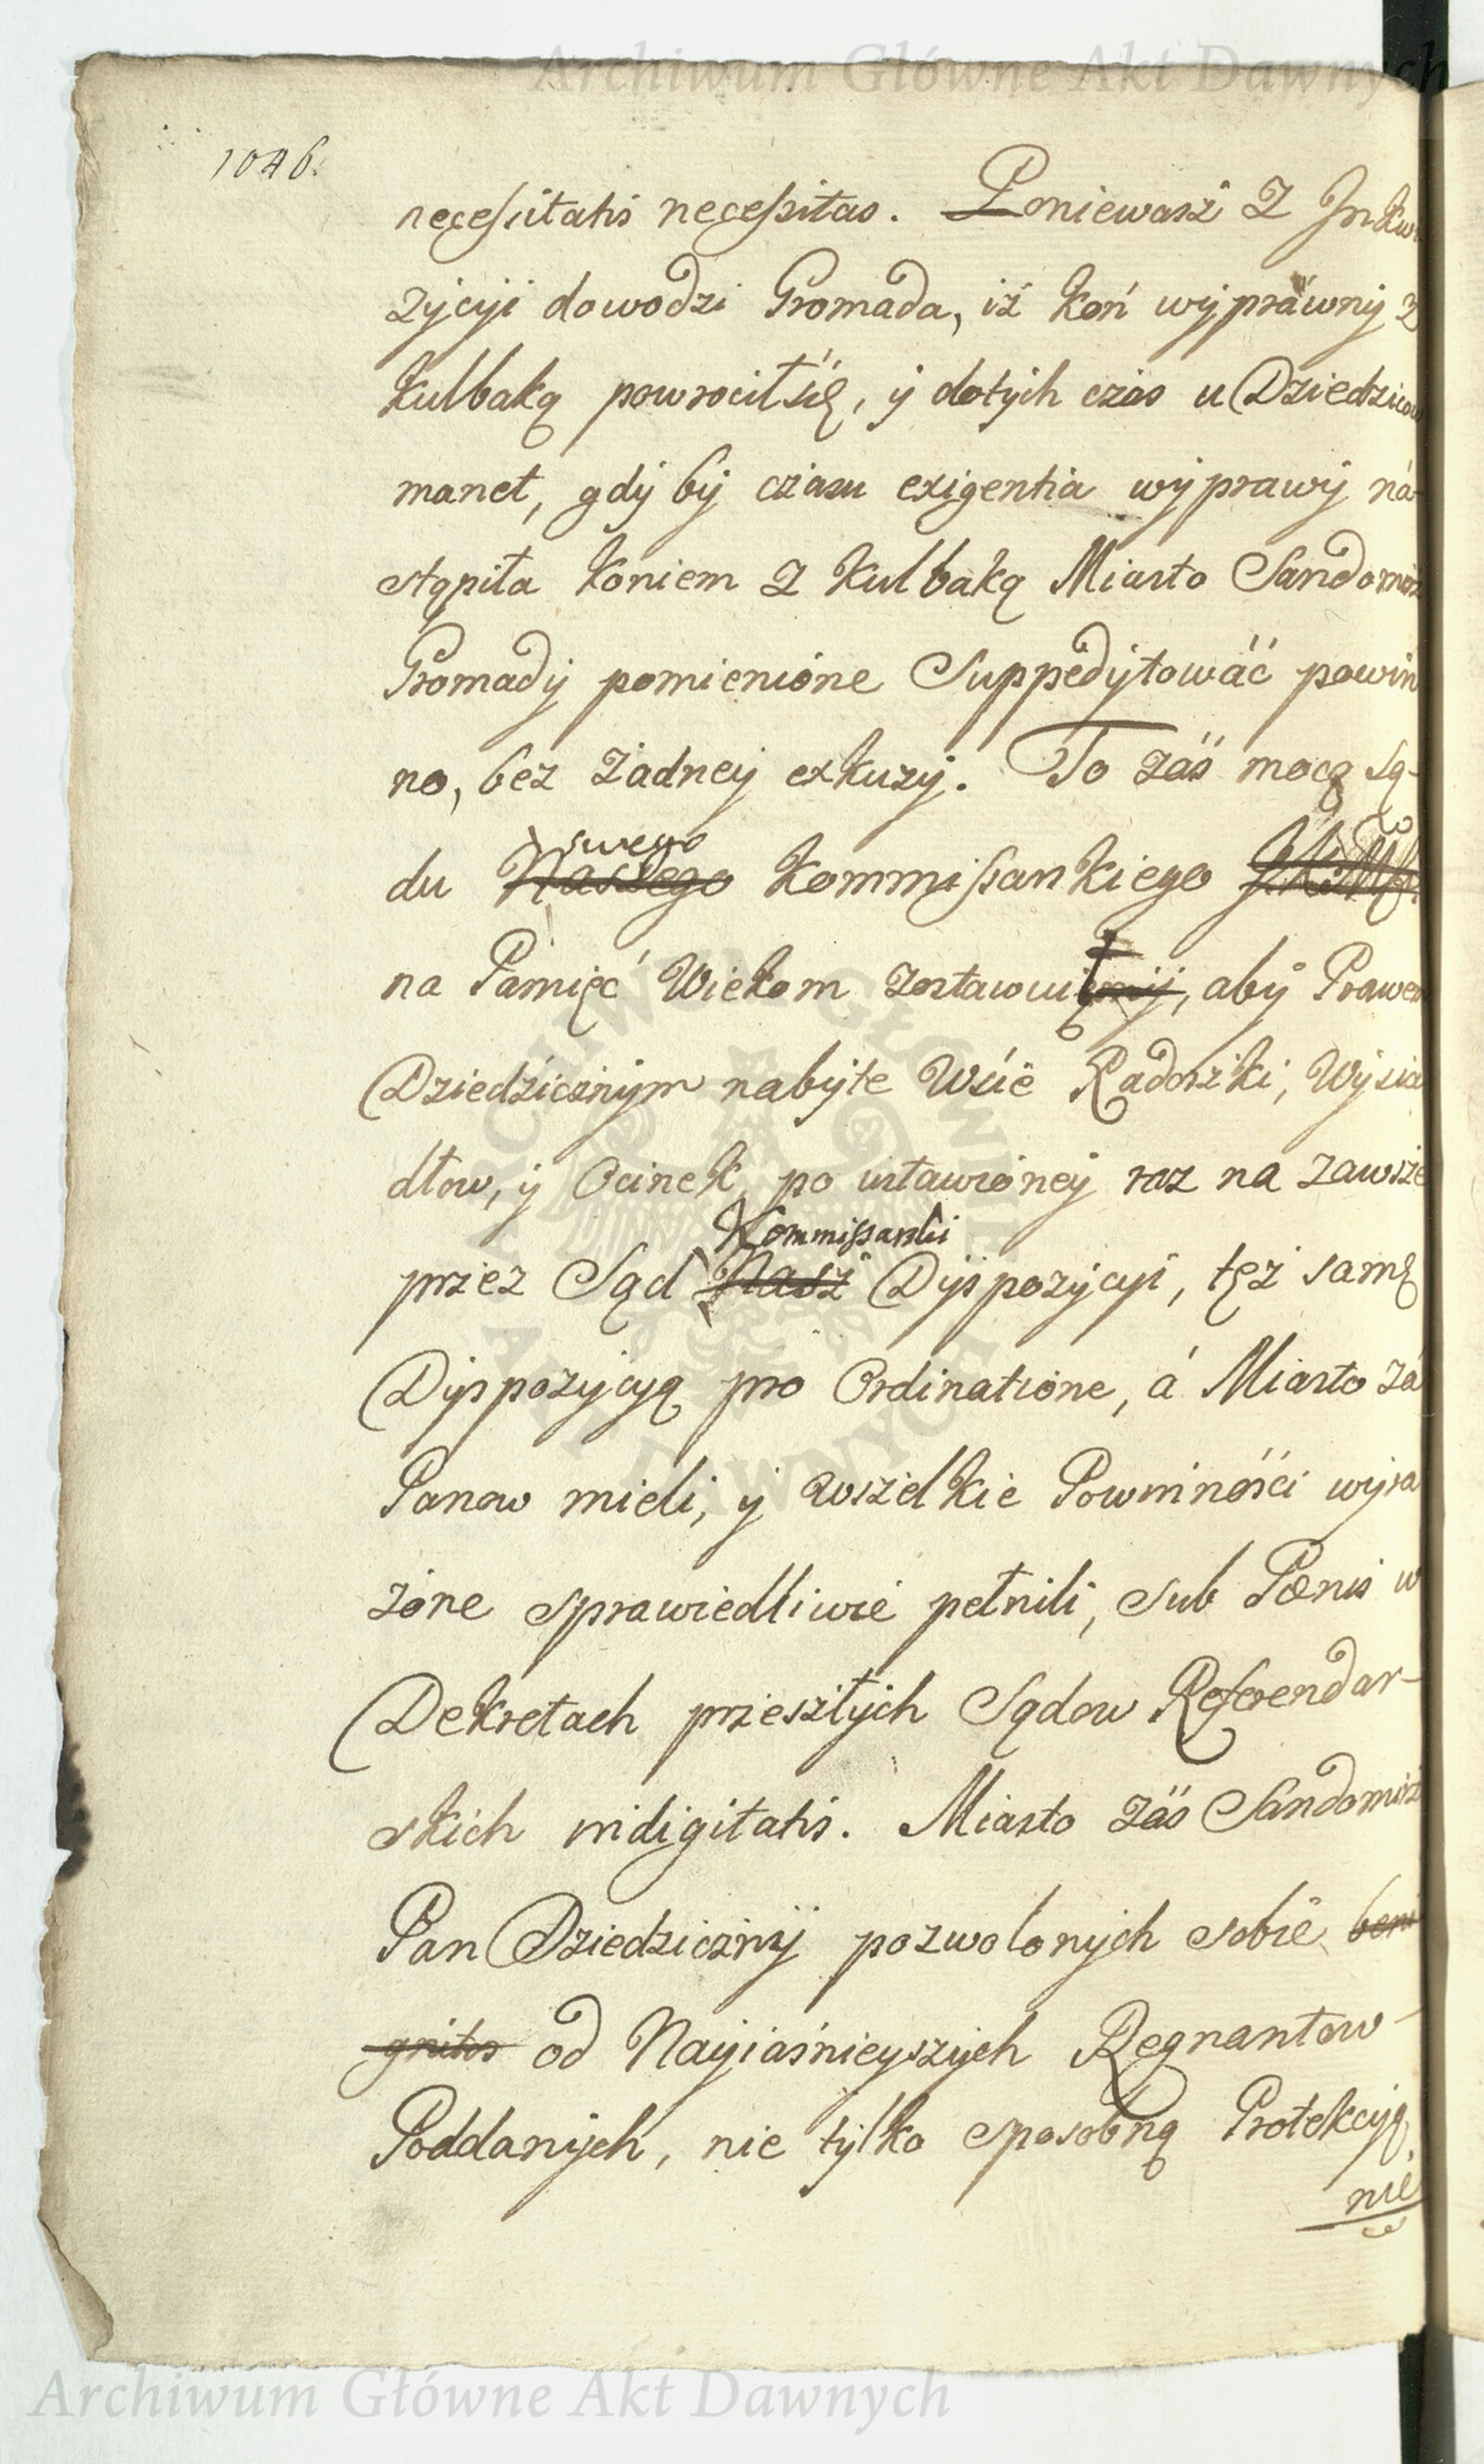 Archiwum Główne Akt Dawnych
1046.
necessitatis necessitas. Poniewasz z Inkwi
zycyi dowodzi Gromada, iż koń wyprawny z
Kulbaką powrocił się, y dotych czas u Dziedzicow
manet, gdy by czasu exigentia wyprawy ná-
stąpiła koniem z kulbaką Miasto Sandomirz
Gromady pomienione Suppedytować powin
no, bez żadney exkuzy. To zaś mocą Są-
du swego Naszego Kommissarskiego J.K.M.
na Pamięć Wiekom zostawuię, aby Prawem
Dziedzicznym nabyte Wsie Radoszki, Wysia
dłow, y Ocinek po ustawioney raz na zawsze
Kommissarski
przez Sąd Nasz Dyspozycyi, tęż samę
Dyspozycyą pro Ordinatione, á Miasto zá
Panow mieli, y wszelkie Powinności wyra
żone sprawiedliwie pełnili, sub Pœnis w
Dekretach przeszłych Sądow Referendar-
skich indigitatis. Miasto zaś Sandomirz
Pan Dziedziczny pozwolonych sobie beni
gniter od Nayiaśnieyszych Regnantow
Poddanych, nie tylko sposobną Protekcyą,
nie
ARCHIWUM GŁÓWNE AKT DAWNYCH
Archiwum Główne Akt Dawnych